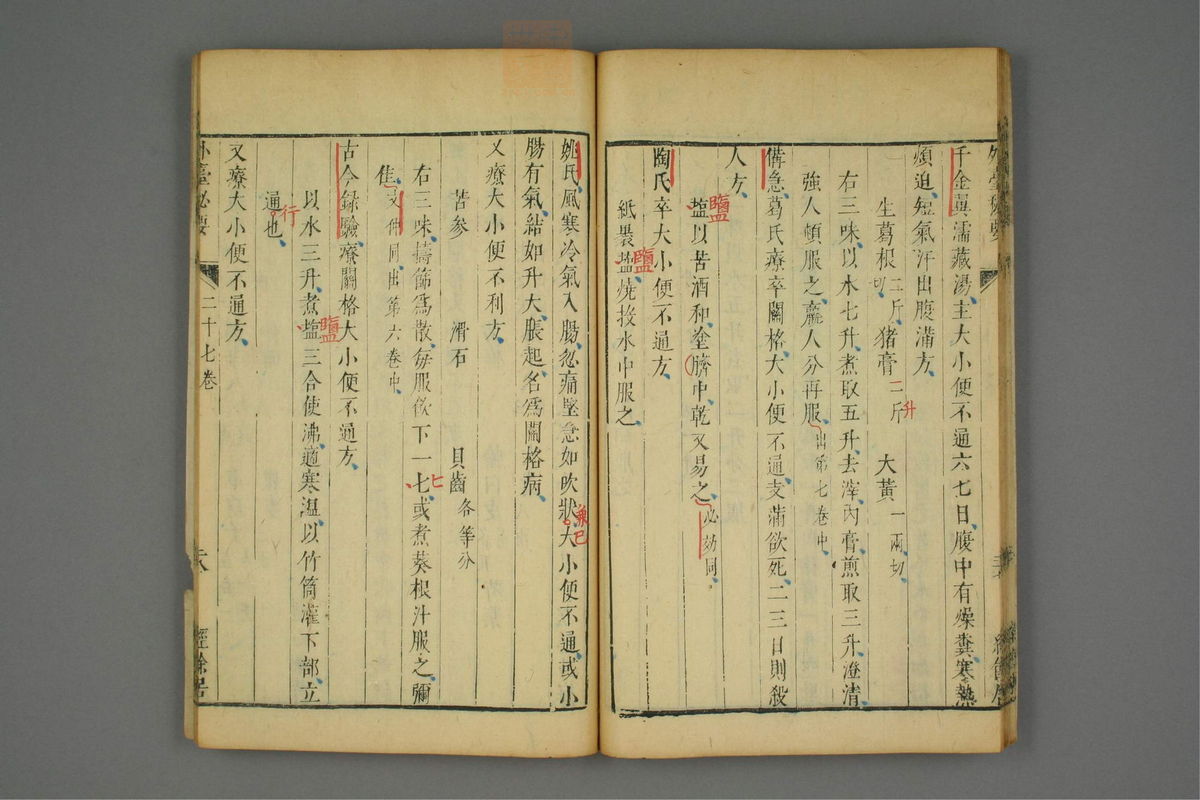 千金真濡藏湯主大小便不通六七日腹中有燥糞寒熱
煩迫短氣汗出腹滿方
生葛根二斤切 猪膏二斤 大黃一兩切
升
右三味以水七升煮取五升去滓內膏煎取三升澄清
強人頓服之羸人分再服出第七卷中
備急葛氏療卒關格大小便不通支滿欲死二三日則殺
人方
塩以苦酒和塗臍中乾又易之必効同
鹽
陶氏卒大小便不通方
紙裹塩燒投水中服之
鹽
姚氏風寒冷氣入腸忽痛堅急如吹狀大小便不通或小
兼已
腸有氣結如升大脹起名為關格病
又療大小便不利方
苦參 滑石 貝齒各等分
右三味擣篩為散每服飲下一七或煮葵根汁服之彌
匕
佳文仲同出第六卷中
古今録驗療關格大小便不通方
以水三升煮塩三合使沸適寒温以竹筒灌下部立
鹽
通也
行
又療大小便不通方
外臺必要 二十七卷 經餘居